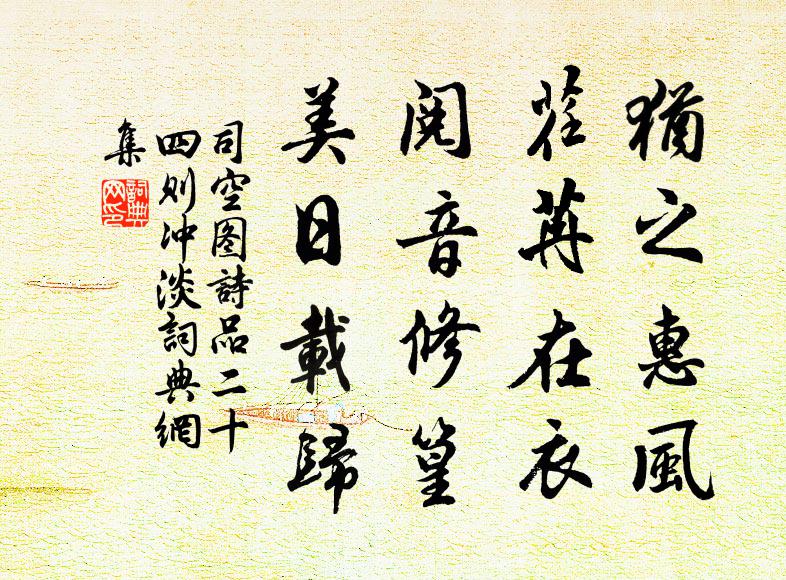 猶之惠風
荏苒在衣
閱音修篁
美日載歸
司空图詩品二十
四则冲淡詞典網
集
詞典网印